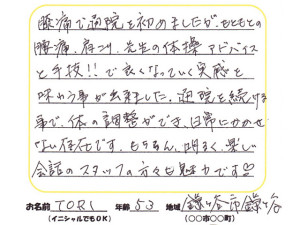 膝痛で通院を初めましたが、もともとの
腰痛、肩こり、先生の体操アドバイス
と手技!!で良くなっていく実感を
味わう事が出来ました。通院を続ける
事で、体の調整ができ、日常にかかせ
ない存在です。もちろん、明るく、楽しい
会話のスタッフの方々も魅力です♡
お名前 TORI 年齢 53 地域 鎌ヶ谷市鎌ヶ谷
(イニシャルでもOK) (○○市○○町)